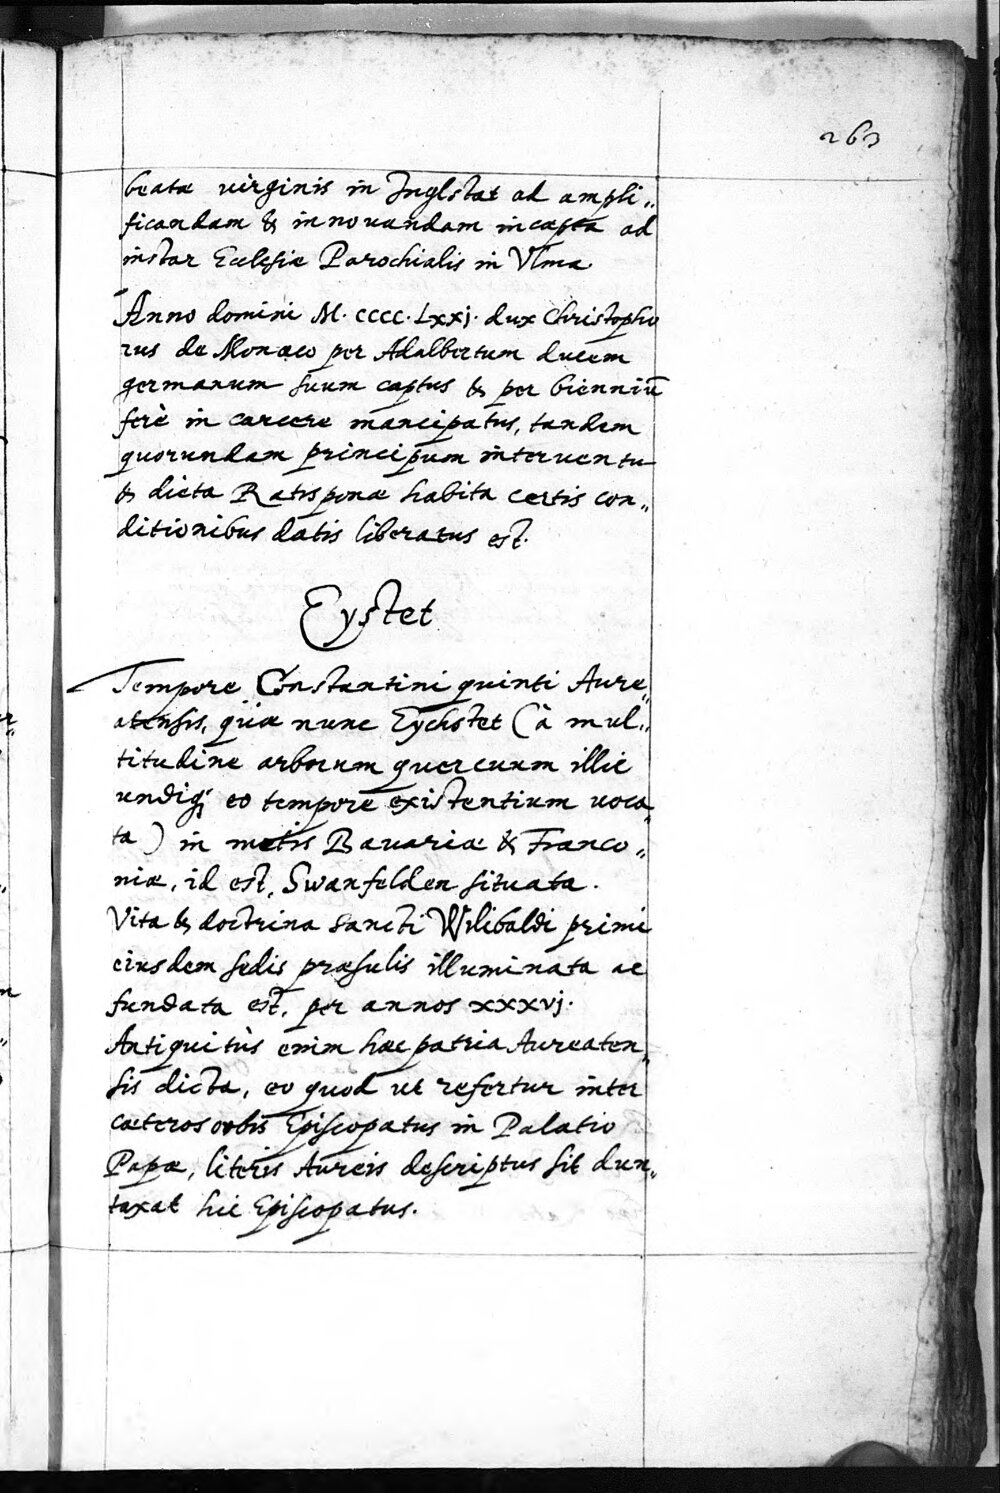 263
beatæ virginis in Inglstat ad ampli„
ficandam & innovandam incæpta ad
instar Ecclesiæ Parochialis in Vlma
Anno domini M. CCCC. Lxxj. dux Christopho
rus de Monaco per Adalbertum ducem
germanum suum captus & per bienniū
ferè in carcere mancipatus, tandem
quorundam principum interventu
& dieta Ratisponæ habita certis con„
ditionibus datis liberatus est.
Eystet
Tempore Constantini quinti Aure„
atensis, quæ nunc Eychstet (à mul„
titudine arborum quercuum illic
undiq; eo tempore existentium voca„
ta) in metis Bavariæ & Franco„
niæ, id est, Swanfelden situata.
Vita & doctrina sancti Wilibaldi primi
eiusdem sedis præsulis illuminata ac
fundata est, per annos xxxvj.
Antiquitùs enim hæc patria Aureaten„
sis dicta, eo quod ut refertur inter
cæteros orbis Episcopatus in Palatio
Papæ, literis Aureis descriptus sit dun„
taxat hic Episcopatus.